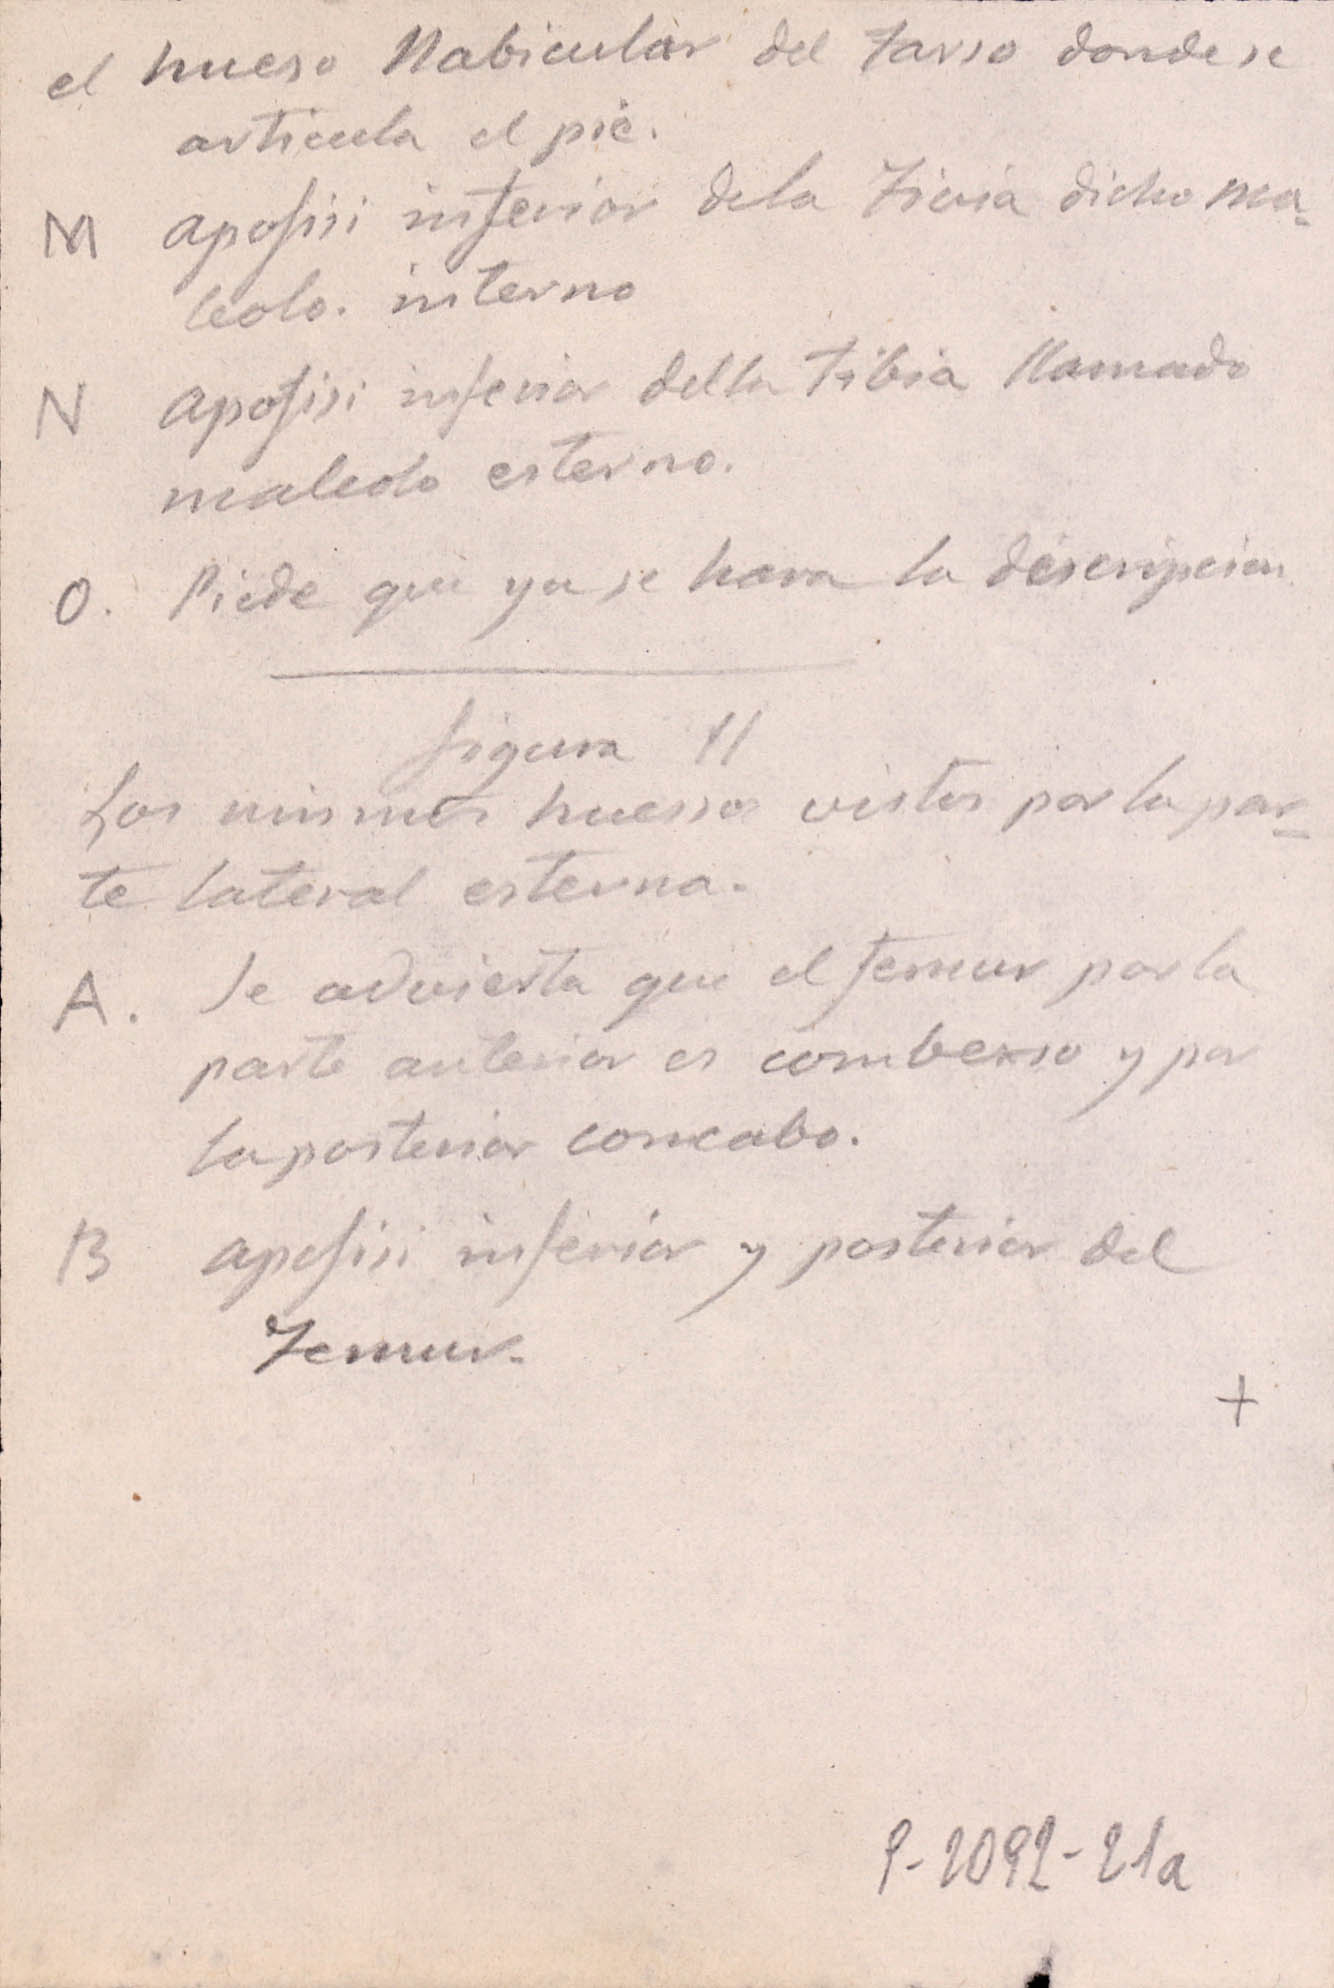 el hueso Nabicular del Tarso donde se
articula el pie.
M apofisi inferior dela Tivia dicho ma-
leolo. interno
N apofisi inferior della Tibia llamado
maleolo esterno.
O. Piede que ya se hara la descripcion
figura 11
Los mismos huesos vistos por la par-
te lateral esterna.
A. Se advierta que el femur por la
parte anterior es combexso y por
la posterior concabo.
B apofisi inferior y posterior del
Femur.
+
P-2092-21a